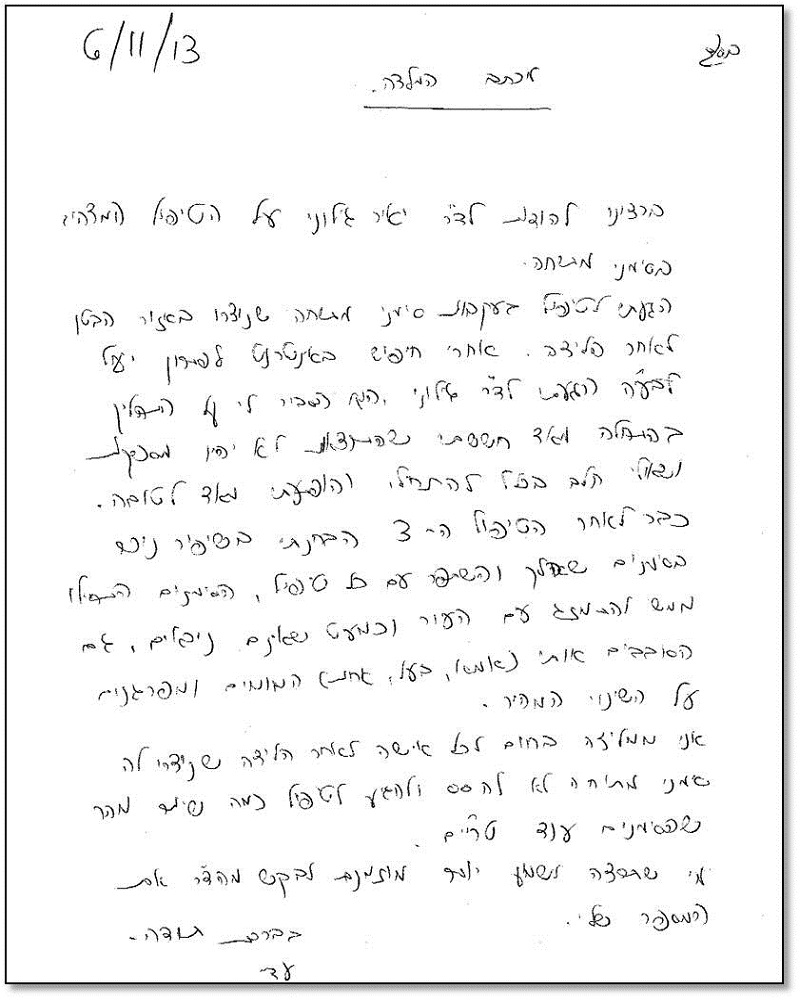 6/11/13
בס"ד
מכתב המלצה.
ברצוני להודות לד"ר יאיר גילוני על הטיפול המדהים
בסימני מתיחה.
הגעתי לטיפול בעקבות סימני מתיחה שנוצרו באזור הבטן
לאחר הלידה. אחרי חיפוש באינטרנט לפתרון יעיל
לבעיה הגעתי לד"ר גילוני, הוא הסביר לי על התהליך
בהתחלה מאד חששתי שהתוצאות לא יהיו מספקות
ושאולי חלב בכלל להתחיל, והופתעתי מאד לטובה.
כבר לאחר הטיפול ה-3 הבחנתי בשיפור ניכר
בסימנים שהלך והשתפר עם כל טיפול, הסימנים התחילו
ממש להתמזג עם העור וכמעט שאינם ניכרים, גם
הסובבים אותי (אמא, בעל, אחות) המומים ומפרגנים
על השינוי המהיר.
אני ממליצה בחום לכל אישה לאחר הלידה שנוצרו לה
סימני מתיחה לא להסס ולהגיע לטיפול כמה שיותר מהר
שהסימנים עוד טריים.
מי שתרצה לשמוע יותר מוזמנת לבקש מהד"ר את
המספר שלי.
בברכה תודה.
עדי